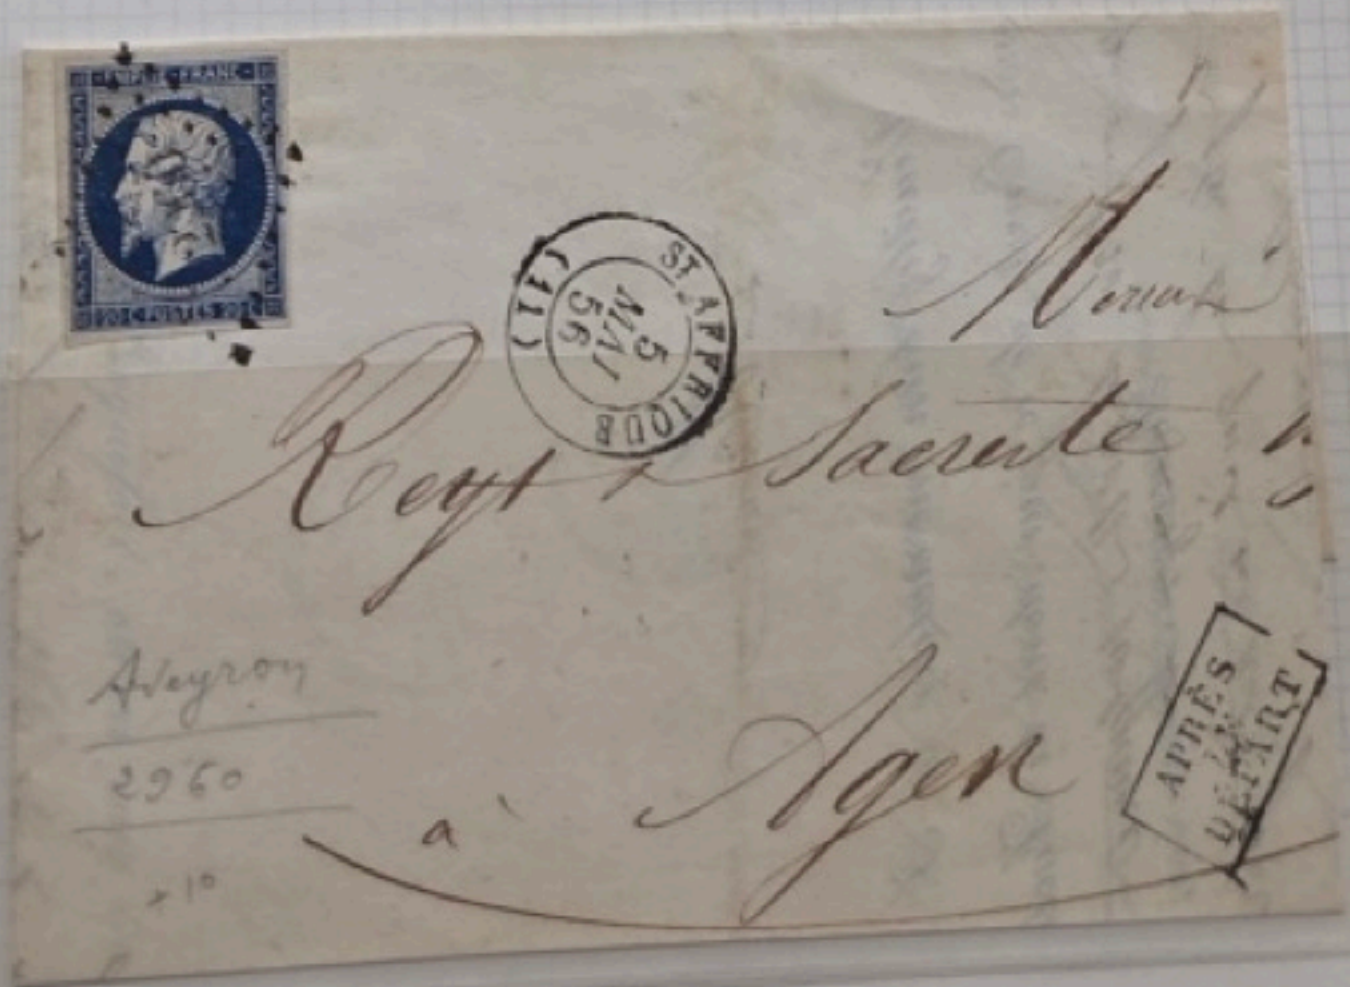 EMPIRE FRANC
20 C POSTES 20 C
ST AFFRIQUE
5
MAI
56
(11)
Reyt &
à Agen
APRÈS
LE
DÉPART
Aveyron
2960
+10